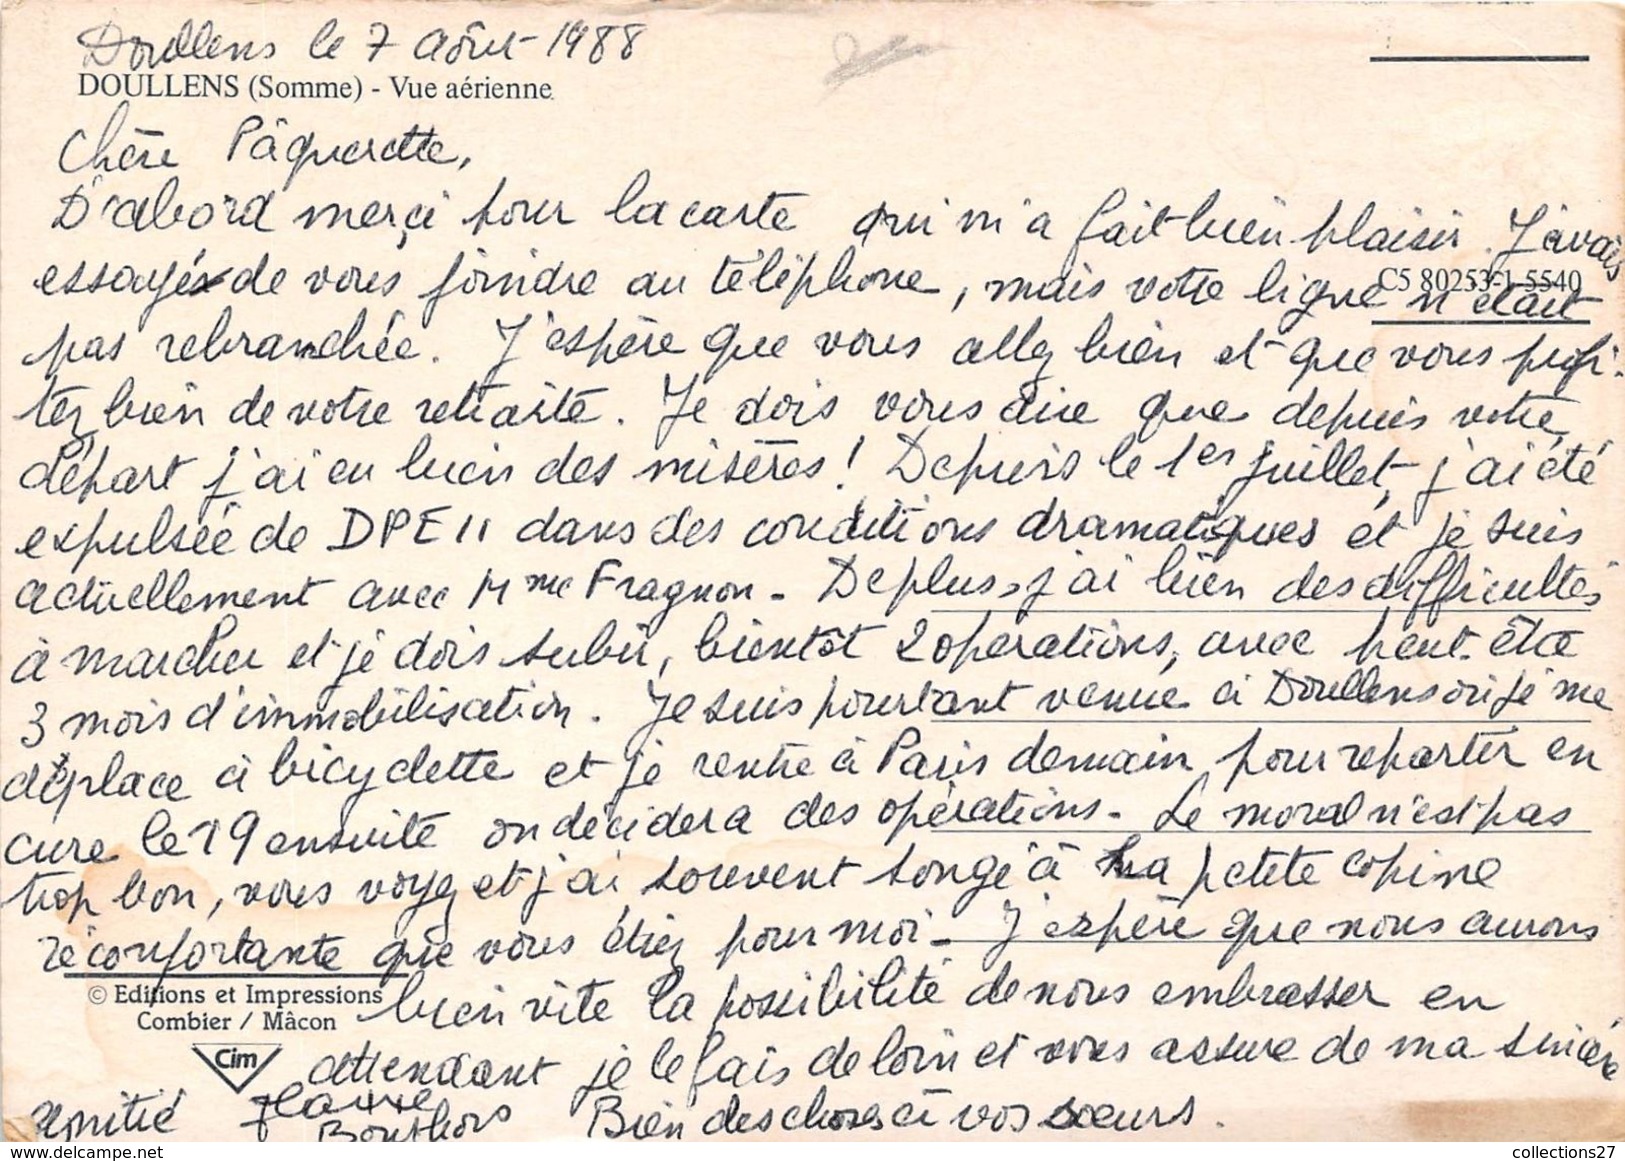 Doullens le 7 août 1988
DOULLENS (Somme) - Vue aérienne
Chère Pâquerette,
D'abord merci pour la carte qui m'a fait bien plaisir. J'avais
essayé de vous joindre au téléphone, mais votre ligne n'était
C5 80253-1-5540
pas rebranchée. J'espère que vous allez bien et que vous profi-
tez bien de votre retraite. Je dois vous dire que depuis votre
départ j'ai eu bien des misères! Depuis le 1er juillet, j'ai été
expulsée de DPE 11 dans des conditions dramatiques et je suis
actuellement avec Mme Fragnon - De plus, j'ai bien des difficultés
à marcher et je dois subir, bientôt 2 opérations, avec peut-être
3 mois d'immobilisation. Je suis pourtant venue à Doullens où je me
déplace à bicyclette et je rentre à Paris demain pour repartir en
cure le 19 ensuite on décidera des opérations - Le moral n'est pas
trop bon, vous voyez et j'ai souvent songé à la petite copine
réconfortante que vous étiez pour moi - J'espère que nous aurons
© Editions et Impressions
Combier / Mâcon
bien vite la possibilité de nous embrasser en
Cim
attendant je le fais de loin et vous assure de ma sincère
amitié Bien des choses à vos soeurs.
collections27